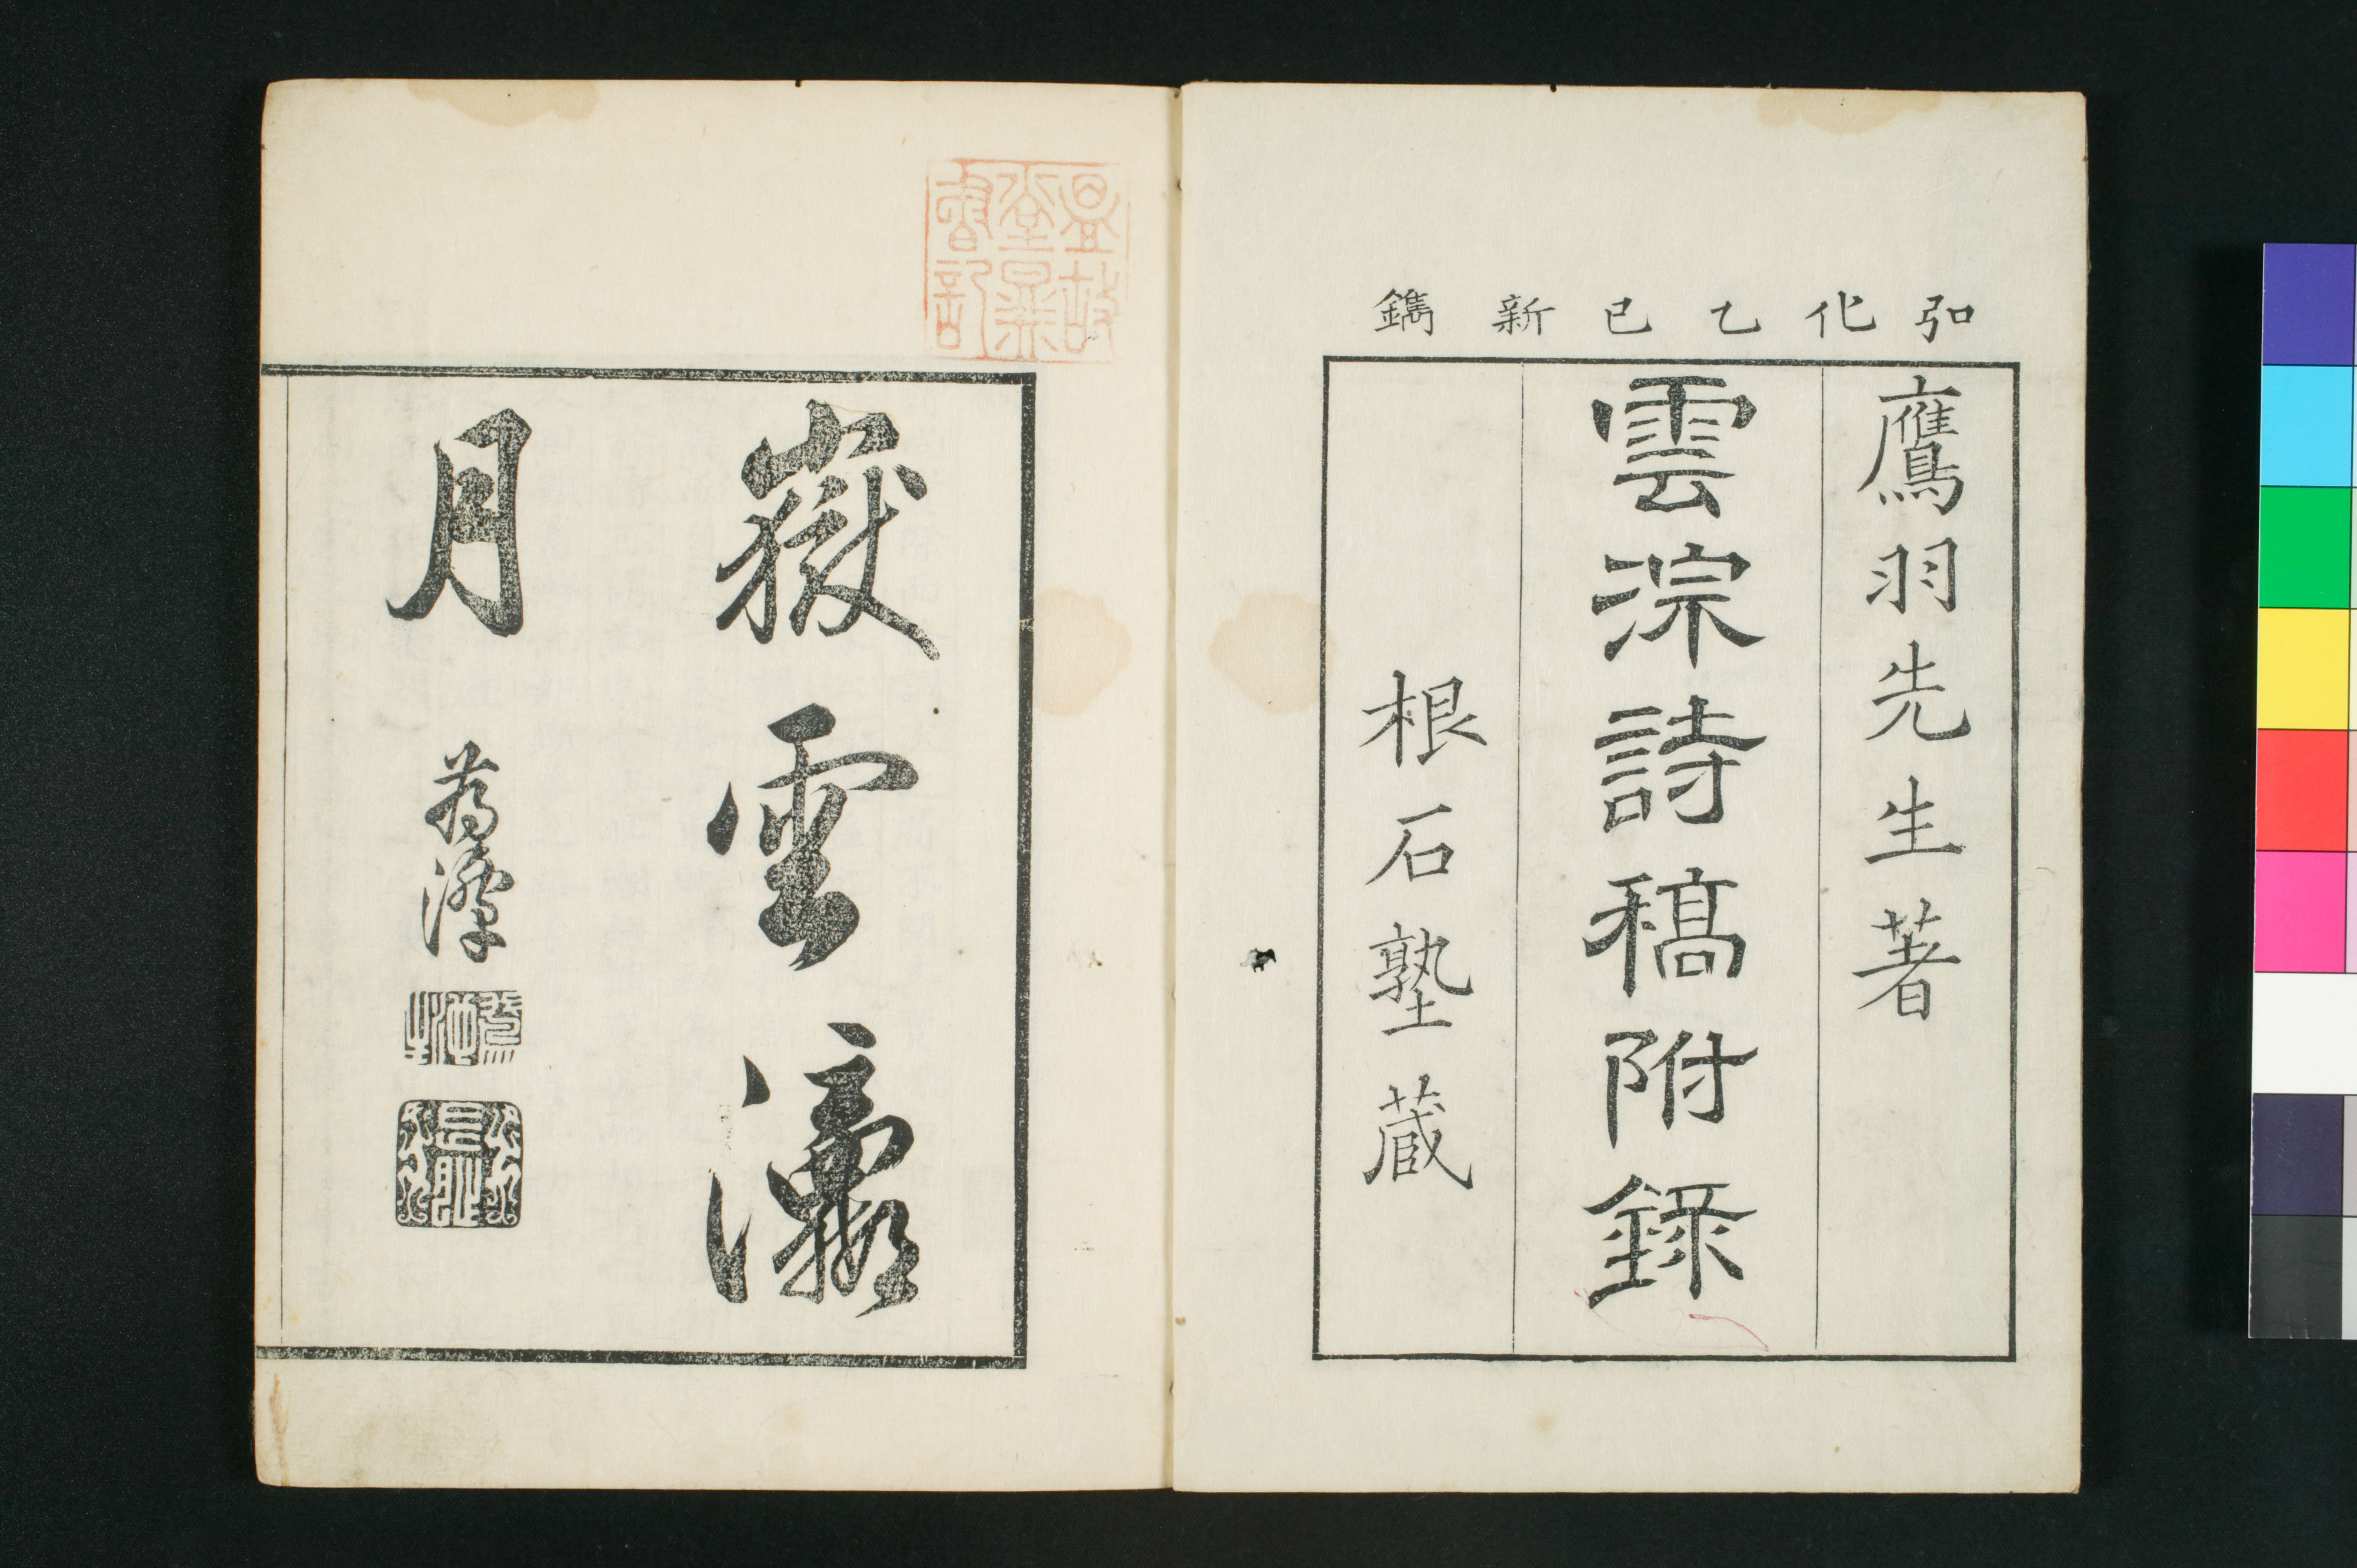 弘化乙巳新鐫
鷹羽先生著
雲淙詩稿附録
根石塾蔵
嶽雲瀛
月